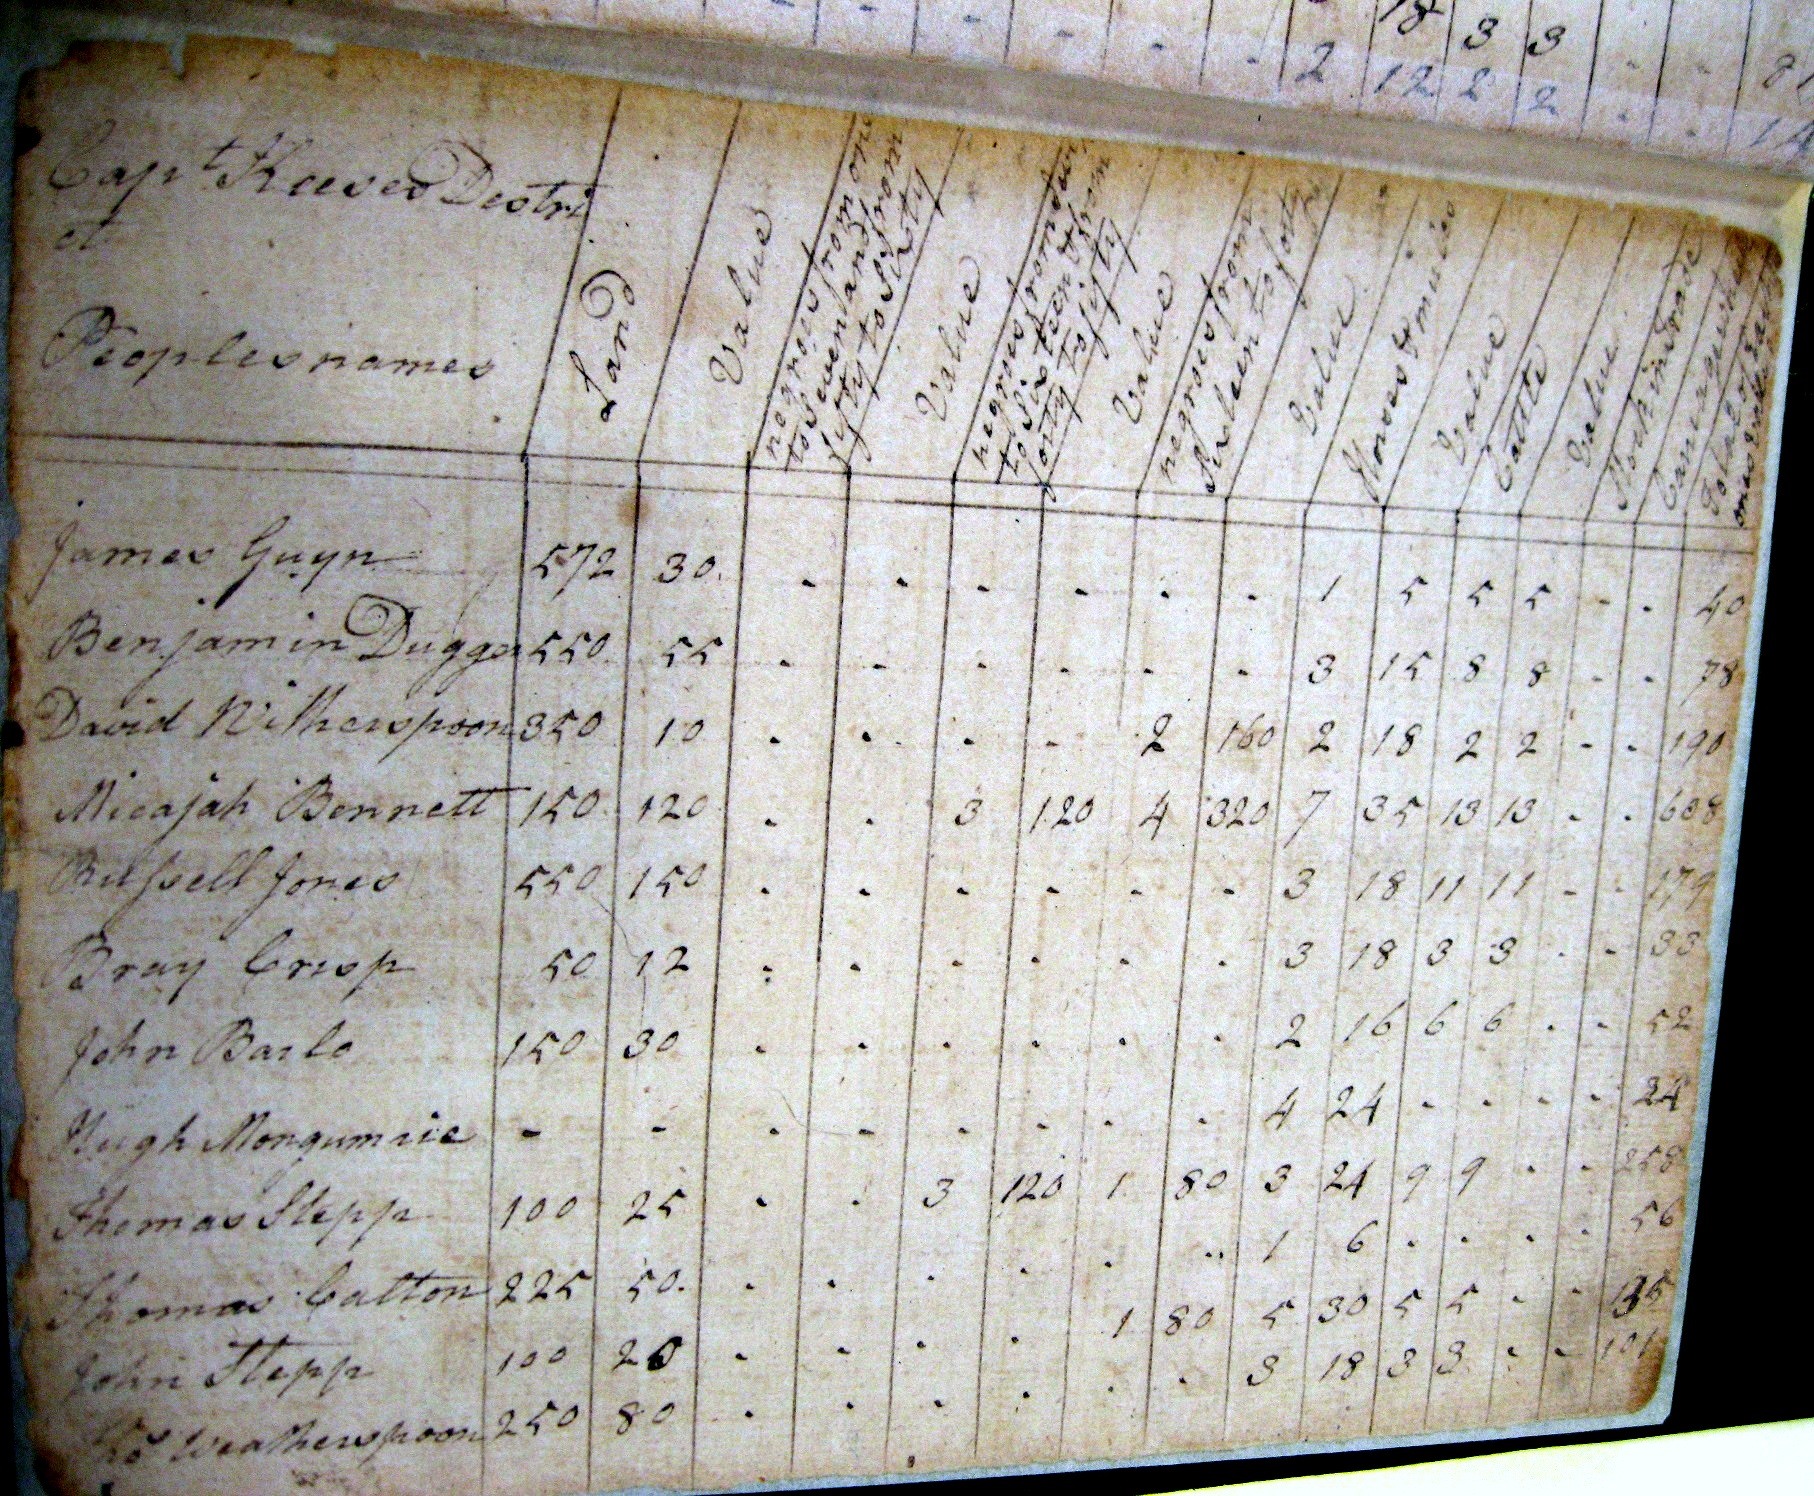 18 3 3 - -
- - - - - - 2 12 2 2 - -
Capt Keeses Destri
ct
Peoples names
Land
Value
negroes from one
to Seven and from
fifty to Sixty
Value
negroes from
to Sixteen & from
forty to fifty
Value
negroes from
Sixteen to forty
Value
Horses & mules
Value
Cattle
Value
Stock in trade
Total of
James Guyn 572 30. - - - - - - 1 5 5 5 - - 40
Benjamin Dugger 550 55 - - - - - - 3 15 8 8 - - 78
David Witherspoon 350 10 - - - - 2 160 2 18 2 2 - - 190
Micajah Bennett 150 120 - - 3 120 4 320 7 35 13 13 - - 608
Russell Jones 550 150 - - - - - - 3 18 11 11 - - 179
Bray Crisp 50 12 - - - - - - 3 18 3 3 - - 33
John Barlo 150 30 - - - - - - 2 16 6 6 - - 52
Hugh Mongumrie - - - - - - - - 4 24 - - - - 24
Thomas Stepp 100 25 - - 3 120 1 80 3 24 9 9 - - 258
Thomas Calton 225 50. - - - - - - 1 6 - - - - 56
John Stepp 100 20 - - - - 1 80 5 30 5 5 - - 135
Thos Weatherspoon 250 80 - - - - - - 3 18 3 3 - - 101